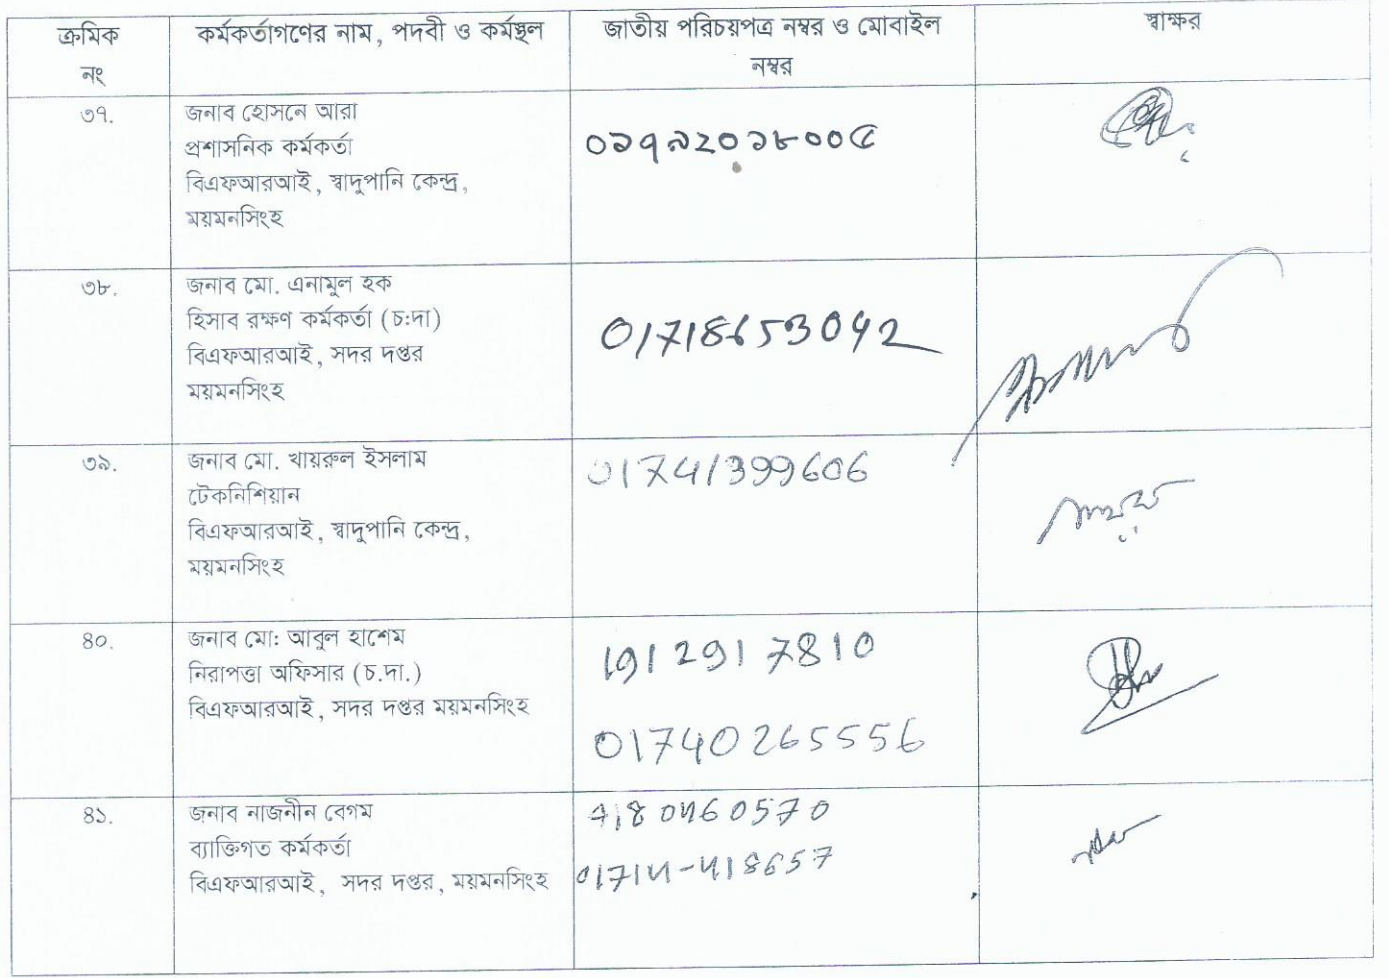 ক্রমিক নং	কর্মকর্তাগণের নাম, পদবী ও কর্মস্থল	জাতীয় পরিচয়পত্র নম্বর ও মোবাইল নম্বর	স্বাক্ষর
৩৭.
জনাব হোসনে আরা
প্রশাসনিক কর্মকর্তা
বিএফআরআই, স্বাদুপানি কেন্দ্র,
ময়মনসিংহ
০১৭৯২০১৮০০৫
৩৮.
জনাব মো. এনামুল হক
হিসাব রক্ষণ কর্মকর্তা (চ:দা)
বিএফআরআই, সদর দপ্তর
ময়মনসিংহ
01718653042
৩৯.
জনাব মো. খায়রুল ইসলাম
টেকনিশিয়ান
বিএফআরআই, স্বাদুপানি কেন্দ্র,
ময়মনসিংহ
01741399606
৪০.
জনাব মো: আবুল হাশেম
নিরাপত্তা অফিসার (চ.দা.)
বিএফআরআই, সদর দপ্তর ময়মনসিংহ
1912917810
01740265556
৪১.
জনাব নাজনীন বেগম
ব্যাক্তিগত কর্মকর্তা
বিএফআরআই, সদর দপ্তর, ময়মনসিংহ
01714-418657